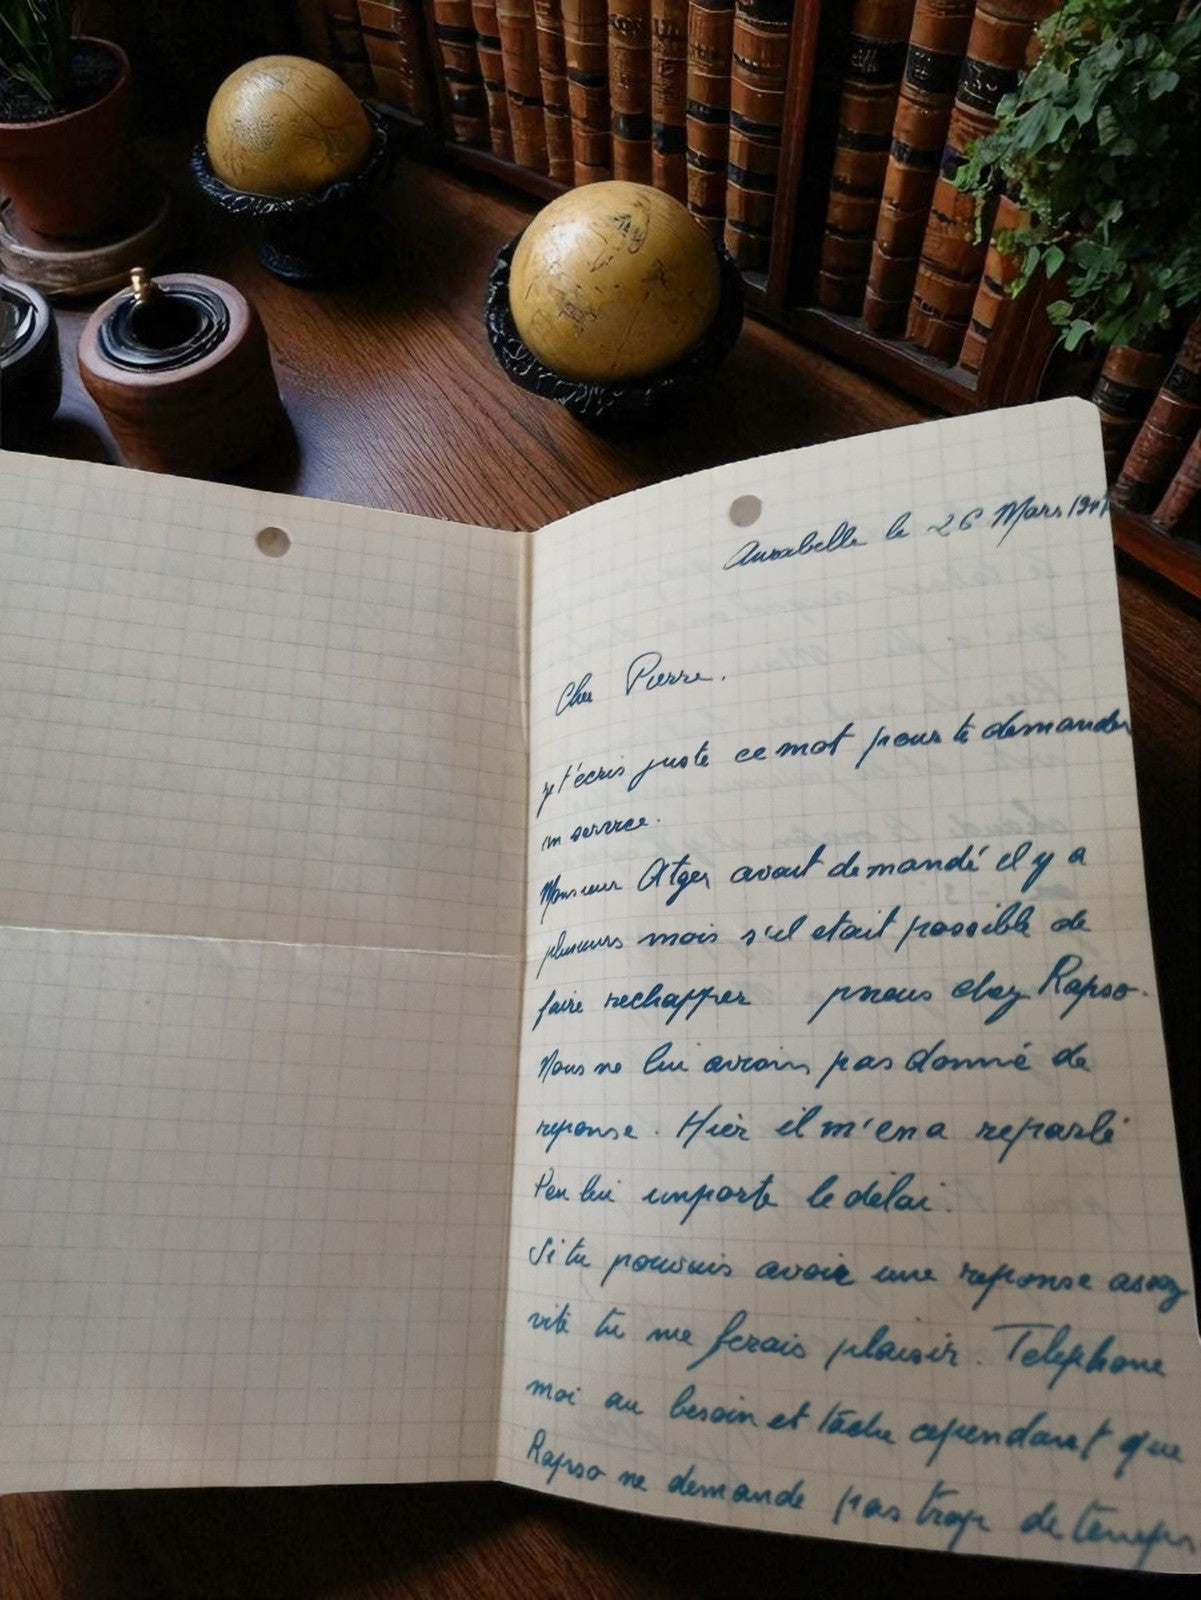 Aurabelle le 26 Mars 1941
Cher Pierre.
je t'écris juste ce mot pour te demander
un service.
Monsieur Atger avait demandé il y a
plusieurs mois s'il etait possible de
faire rechapper pneus chez Rapso.
Nous ne lui avions pas donné de
reponse. Hier il m'en a reparlé
Peu lui importe le délai.
Si tu pouvais avoir une reponse assez
vite tu me ferais plaisir. Telephone
moi au besoin et tâche cependant que
Rapso ne demande pas trop de temps